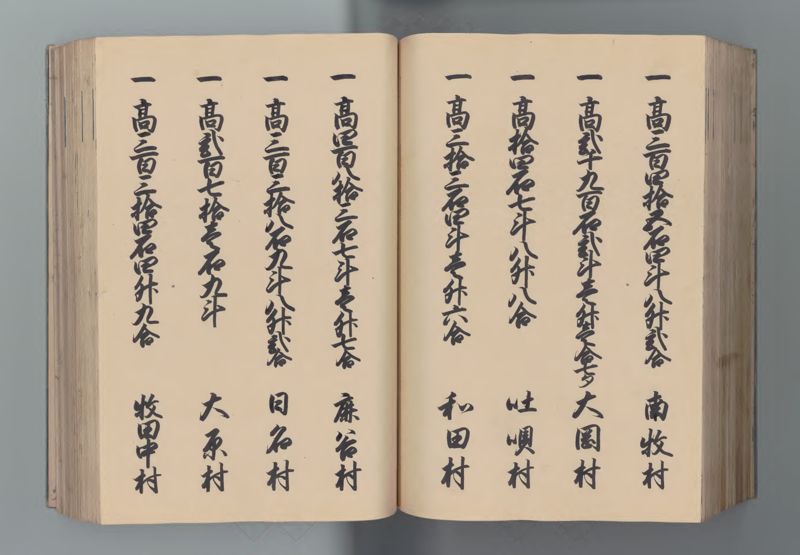 一 高三百四拾五石四斗八升弐合 南牧村
一 高弐千九百石弐斗壱升壱合七夕 大岡村
一 高拾四石七斗八升八合 吐唄村
一 高三拾三石四斗壱升六合 和田村
一 高四百八拾三石七斗壱升七合 麻谷村
一 高三百三拾八石九斗八升弐合 日名村
一 高弐百七拾壱石九斗 大原村
一 高三百三拾四石四升九合 牧田中村